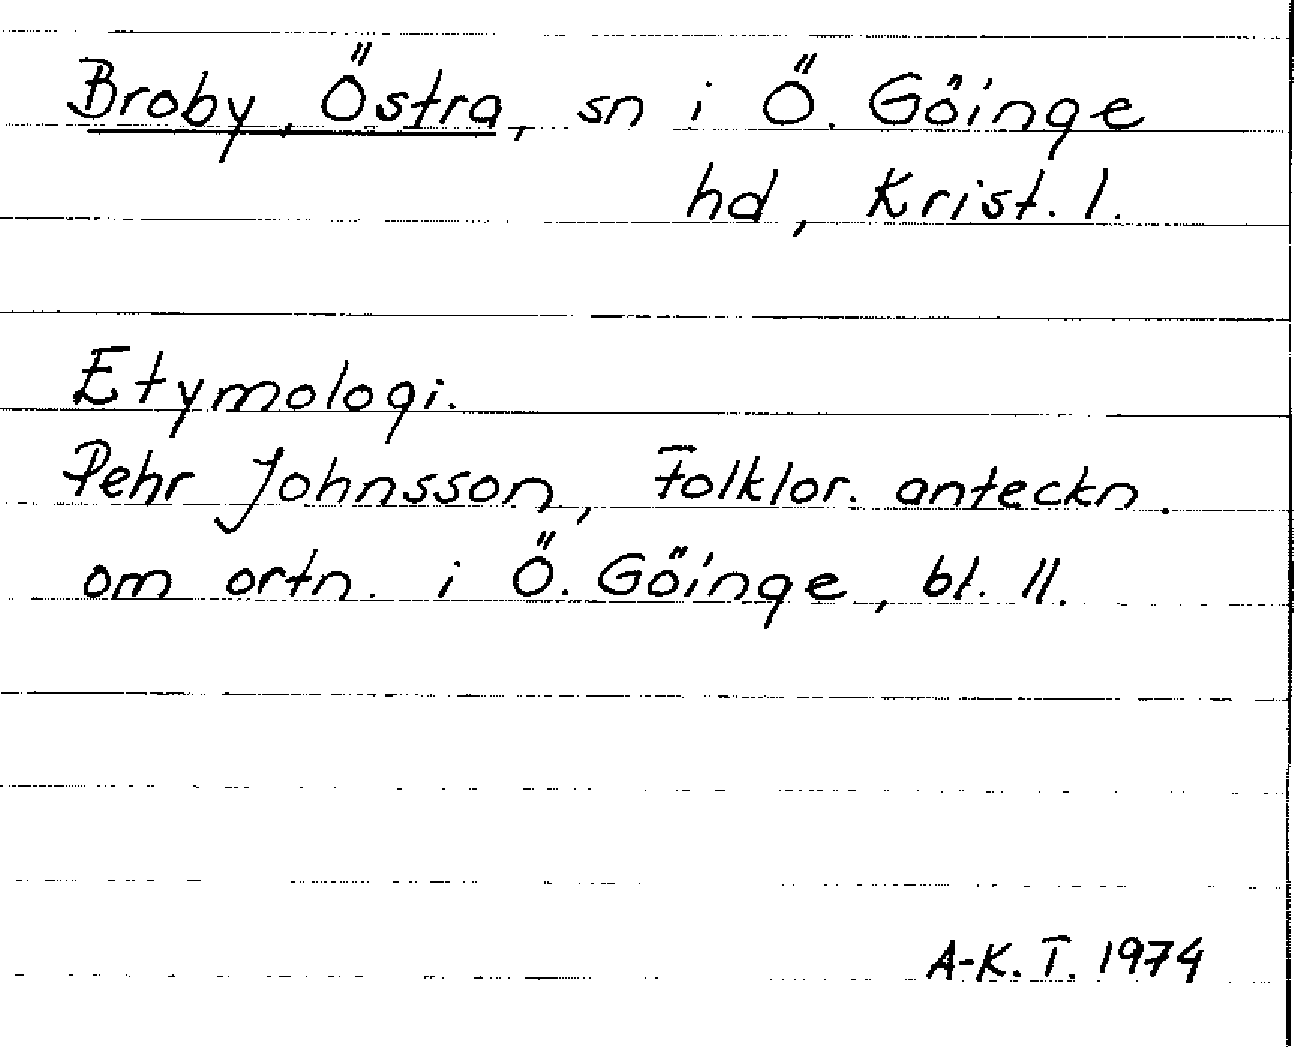 Broby, Östra, sn i Ö. Göinge
hd, Krist. l.
Etymologi.
Pehr Johnsson, Folklor. anteckn.
om ortn. i Ö. Göinge, bl. 11.
A-K. T. 1974